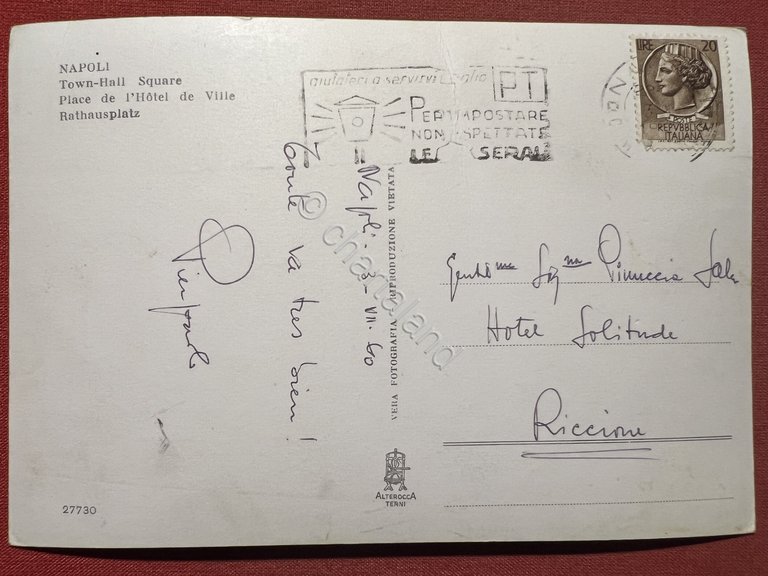 NAPOLI
Town-Hall Square
Place de l'Hôtel de Ville
Rathausplatz
aiutateci a servirvi meglio
PT
PER IMPOSTARE
NON ASPETTATE
LE SERALI
LIRE 20
REPVBBLICA
ITALIANA
Napoli - 3-VII. 60
Tout va tres bien!
Pierpaolo
VERA FOTOGRAFIA - RIPRODUZIONE VIETATA
© chartaland
Gentil.ma Sig.na Pinuccia Sala
Hotel Solitude
Riccione
ALTEROCCA
TERNI
27730